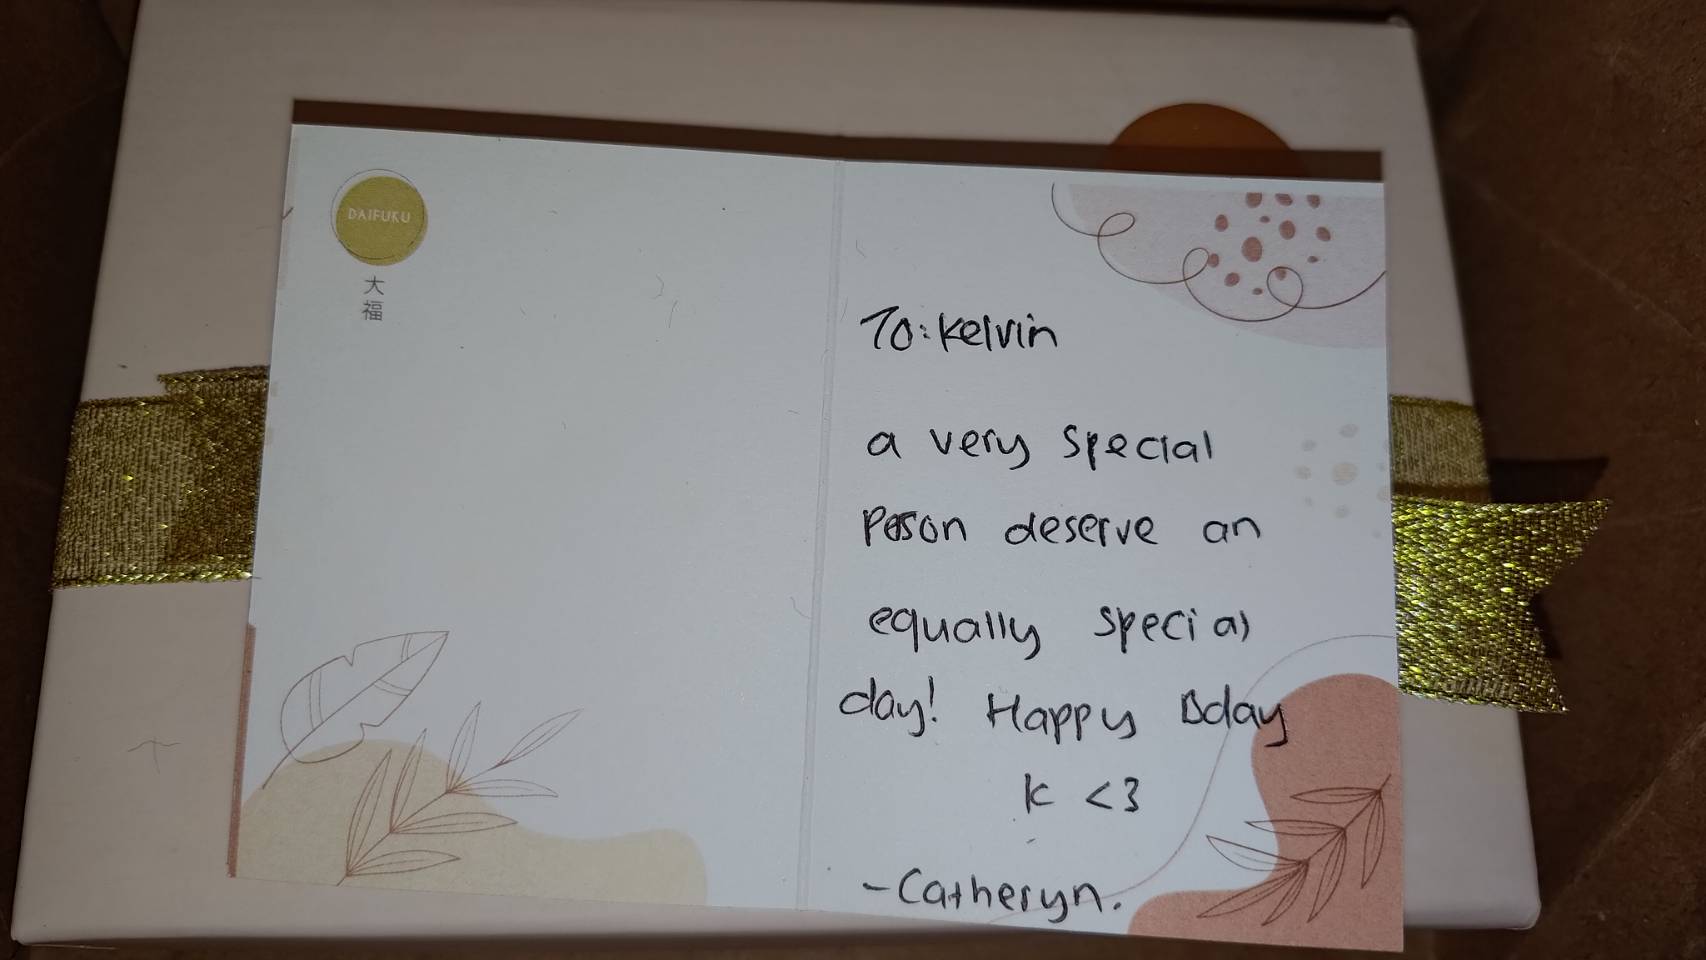 DAIFUKU
大
福
To: Kelvin
a very special
Peson deserve an
equally special
day! Happy Bday
K <3
- Catheryn.